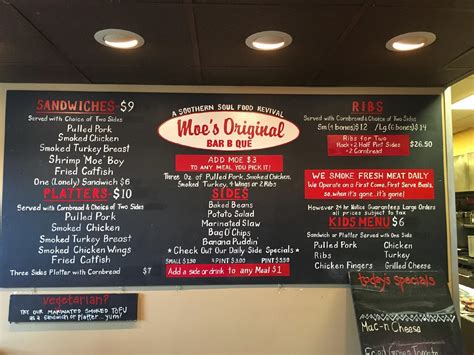 SANDWICHES-$9
Served with Choice of Two Sides
Pulled Pork
Smoked Chicken
Smoked Turkey Breast
Shrimp 'Moe' Boy
Fried Catfish
One (Lonely) Sandwich $6
PLATTERS-$10
Served with Cornbread & Choice of Two Sides
Pulled Pork
Smoked Chicken
Smoked Turkey Breast
Smoked Chicken Wings
Fried Catfish
Three Sides Platter with Cornbread $8
A SOUTHERN SOUL FOOD REVIVAL
Moe's Original
BAR B QUE
ADD MOE $3
TO ANY MEAL YOU PICK IT!
Three Oz of Pulled Pork, Smoked Chicken,
Smoked Turkey, 4 Wings or 2 Ribs
SIDES
Baked Beans
Potato Salad
Marinated Slaw
Bag O' Chips
Banana Pudding
* Check Out Our Daily Side Specials *
SMALL $1.90 ½ PINT $3.50 PINT $5.50
Add a side or drink to any Meal $1
RIBS
Served with Cornbread & Choice of Two Sides
Sm (4 bones) $12 /Lg (6 bones) $14
Ribs for Two
Rack + 2 Half Pint Sides + 2 Cornbreads
$26.50
WE SMOKE FRESH MEAT DAILY
We Operate on a First Come, First Serve Basis,
so when it's gone.. it's gone!
However 24 hr Notice Guarantees Large Orders
all prices subject to tax
KIDS MENU $6
Sandwich or Platter Served with One Side
Pulled Pork
Turkey
Chicken Fingers
Chicken
Ribs
Grilled Cheese
vegetarian?
TRY OUR MARINATED SMOKED TOFU
as a sandwich or platter...yum!
today's specials
Mac-n Cheese
Fried Green Tomato